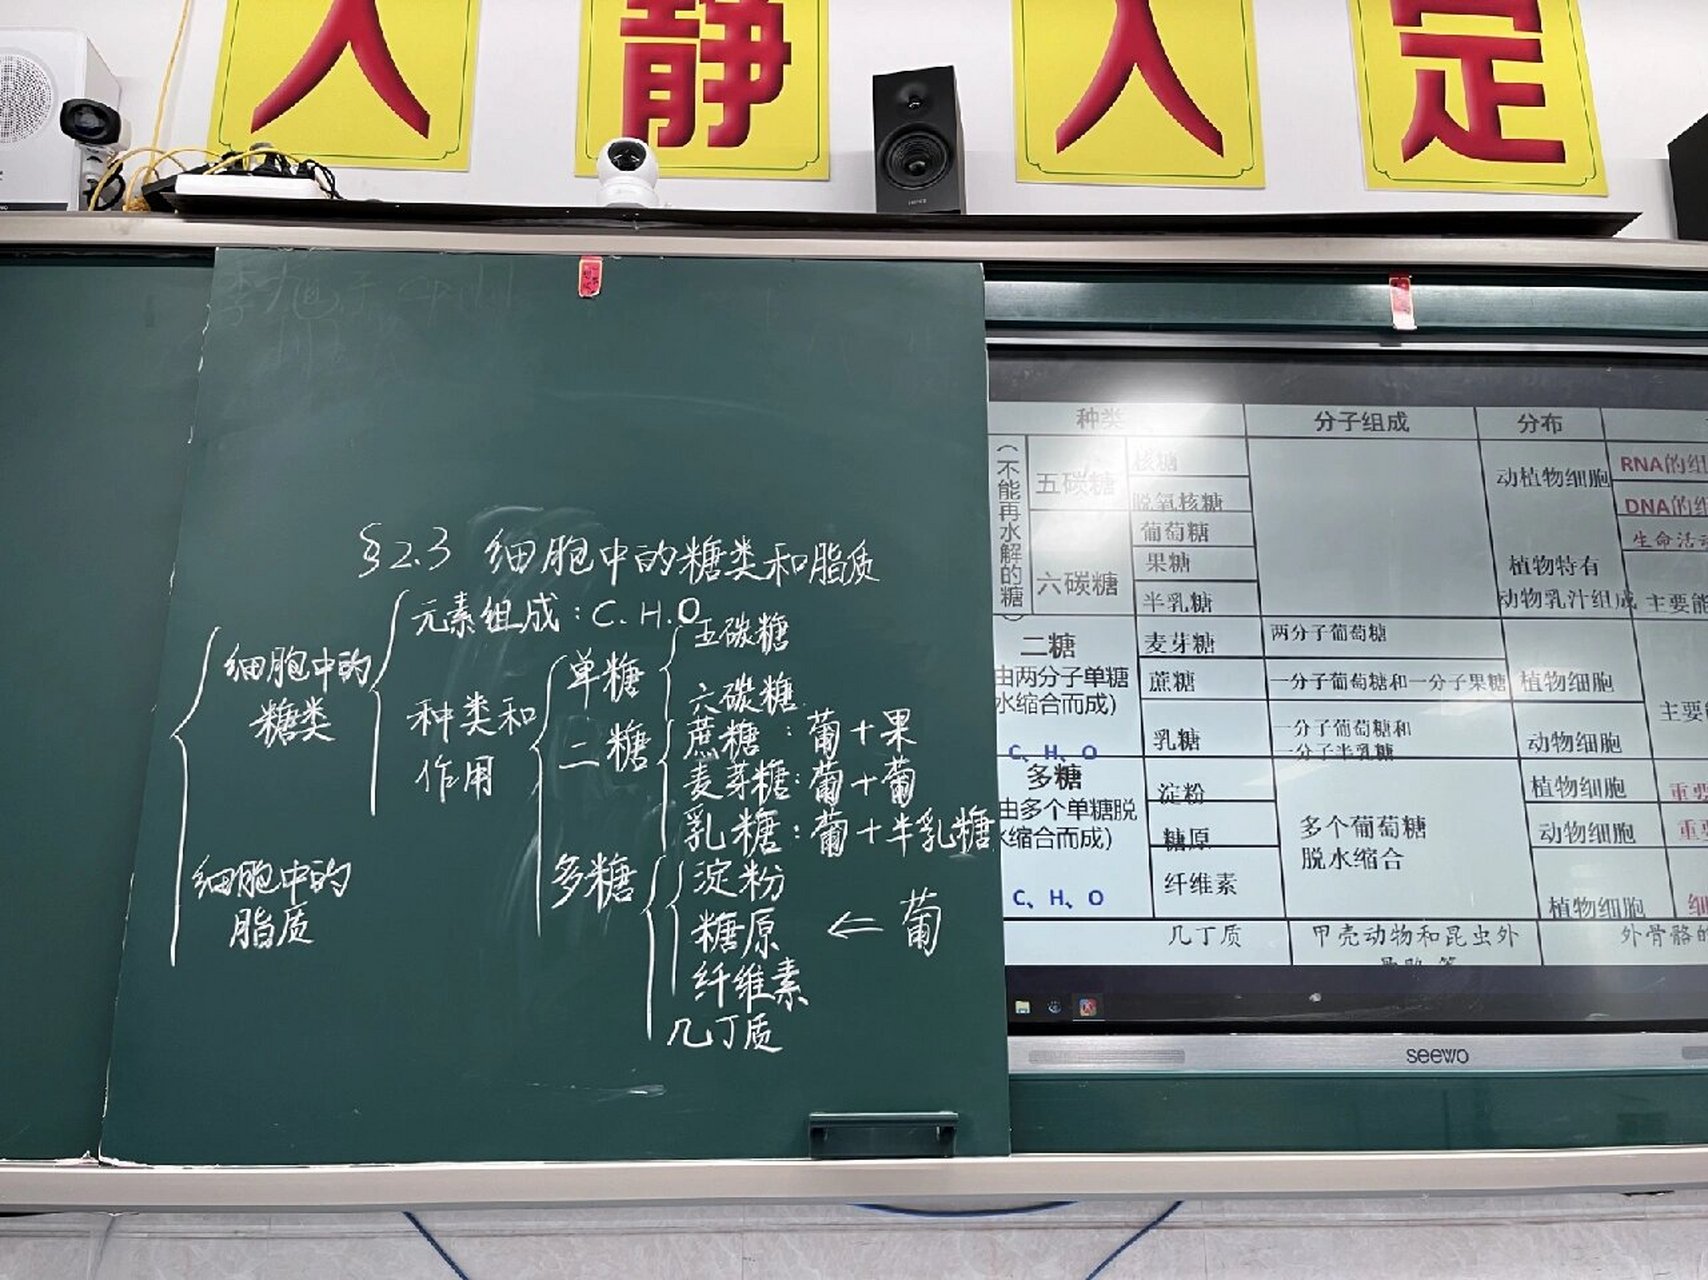 入
静
入
定
§2.3 细胞中的糖类和脂质
细胞中的
糖类
元素组成:C、H、O
种类和
作用
单糖
五碳糖
六碳糖
二糖
蔗糖:葡+果
麦芽糖:葡+葡
乳糖:葡+半乳糖
多糖
淀粉
糖原 ← 葡
纤维素
几丁质
细胞中的
脂质
种类
分子组成
分布
(不能再水解的糖)
五碳糖
核糖
脱氧核糖
动植物细胞
RNA的组
DNA的组
六碳糖
葡萄糖
生命活动
果糖
植物特有
半乳糖
动物乳汁组成
主要能
二糖
由两分子单糖
水缩合而成)
C、H、O
麦芽糖
两分子葡萄糖
蔗糖
一分子葡萄糖和一分子果糖
植物细胞
主要
乳糖
一分子葡萄糖和
一分子半乳糖
动物细胞
多糖
由多个单糖脱
水缩合而成)
C、H、O
淀粉
植物细胞
重要
糖原
多个葡萄糖
脱水缩合
动物细胞
重要
纤维素
植物细胞
细
几丁质
甲壳动物和昆虫外
外骨骼的
seewo